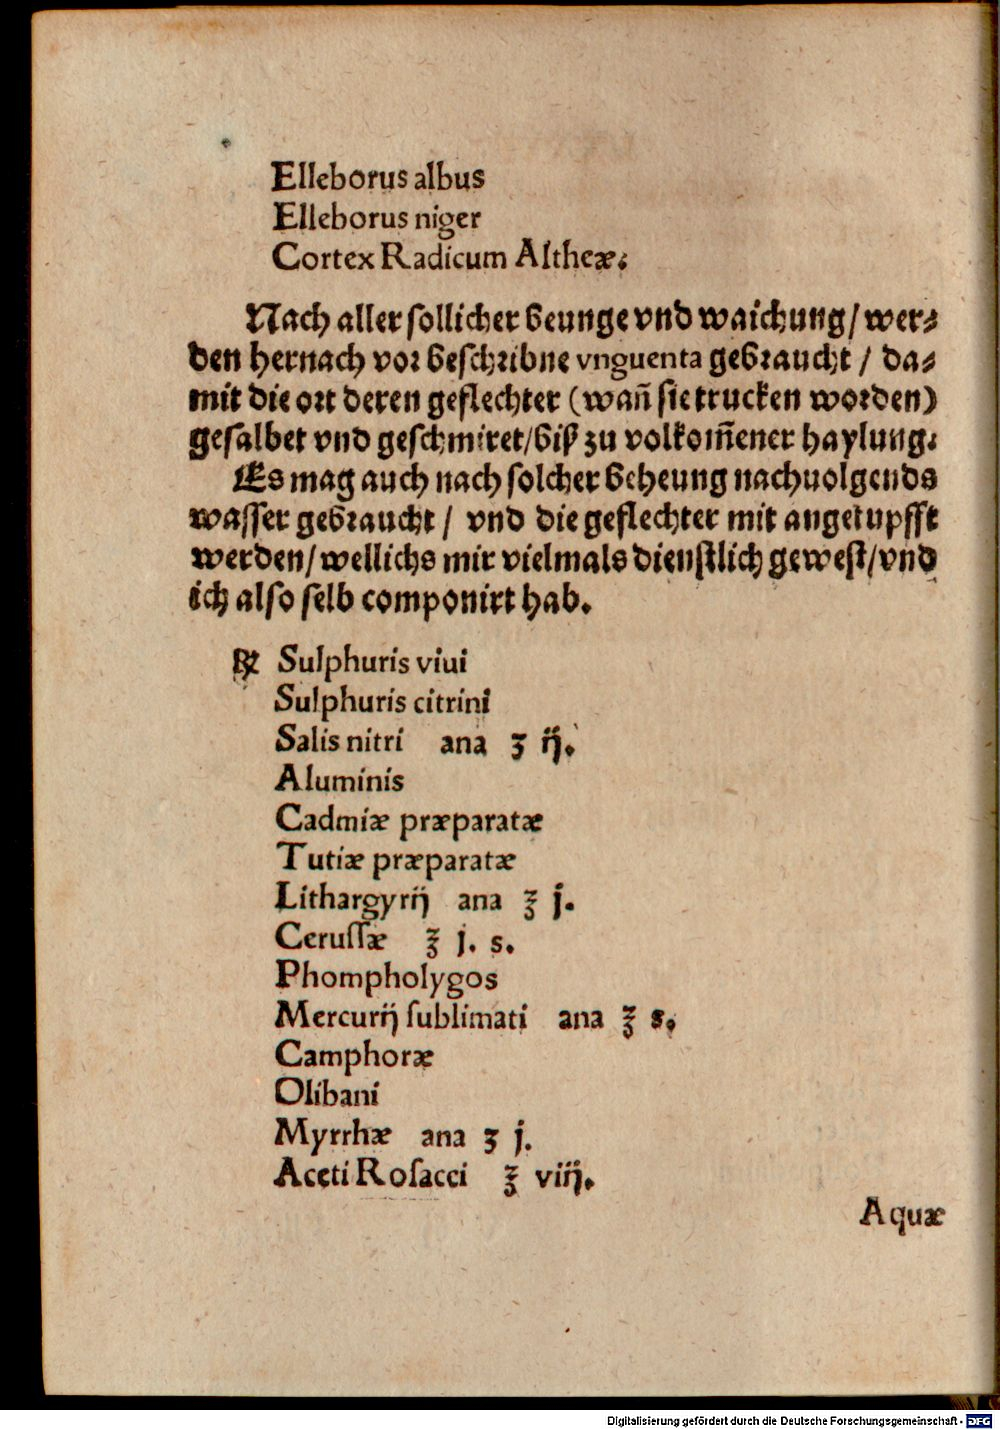 Elleborus albus
Elleborus niger
Cortex Radicum Altheæ.
Nach aller sollicher beunge vnd waichung/ wer⸗
den hernach vor beschribne vnguenta gebraucht / da⸗
mit die ort deren geflechter (wañ sie trucken worden)
gesalbet vnd geschmiret/ biß zu volkom̃ener haylung.
Es mag auch nach solcher beheung nachuolgends
wasser gebraucht / vnd die geflechter mit angetupfft
werden/ wellichs mir vielmals dienstlich gewest/ vnd
ich also selb componirt hab.
℞ Sulphuris viui
Sulphuris citrini
Salis nitri ana ʒ ij.
Aluminis
Cadmiæ præparatæ
Tutiæ præparatæ
Lithargyrij ana ℥ j.
Cerussæ ℥ j. s.
Phompholygos
Mercurij sublimati ana ℥ s.
Camphoræ
Olibani
Myrrhæ ana ʒ j.
Aceti Rosacei ℥ viij.
Aquæ
Digitalisierung gefördert durch die Deutsche Forschungsgemeinschaft - DFG